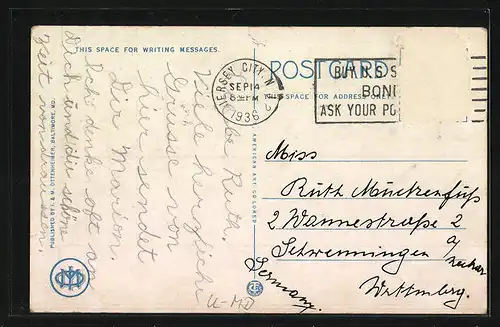 THIS SPACE FOR WRITING MESSAGES.
POSTCARD
THIS SPACE FOR ADDRESS ONLY
JERSEY CITY, N.J.
SEP 14
8 PM
1936
BUY U.S. S
BONDS
ASK YOUR PO
Liebe Ruth,
Viele herzliche
Grüsse von
hier sendet
Dir Marion.
Ich denke oft an
Dich und die schöne
Zeit von draussen.
Miss
Ruth
2 Wannestraße 2
Schwenningen a/
Neckar
Germany.
Wrttmberg.
PUBLISHED BY I. & M. OTTENHEIMER, BALTIMORE, MD.
AMERICAN ART COLORED